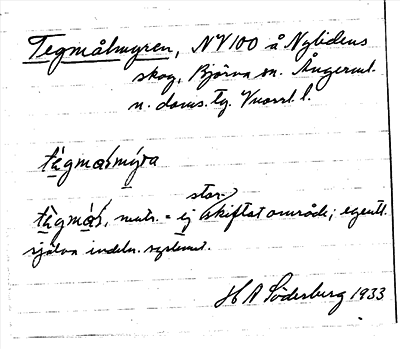 Tegmålmyren, NV 100 å Nylidens
skog, Björna sn. Ångerml.
n. doms. tg.
tégmå⁠lmýra
tégmål, neutr. = ej stor skiftat område; egentl.
själva indeln. systemet.
H A Söderberg 1933